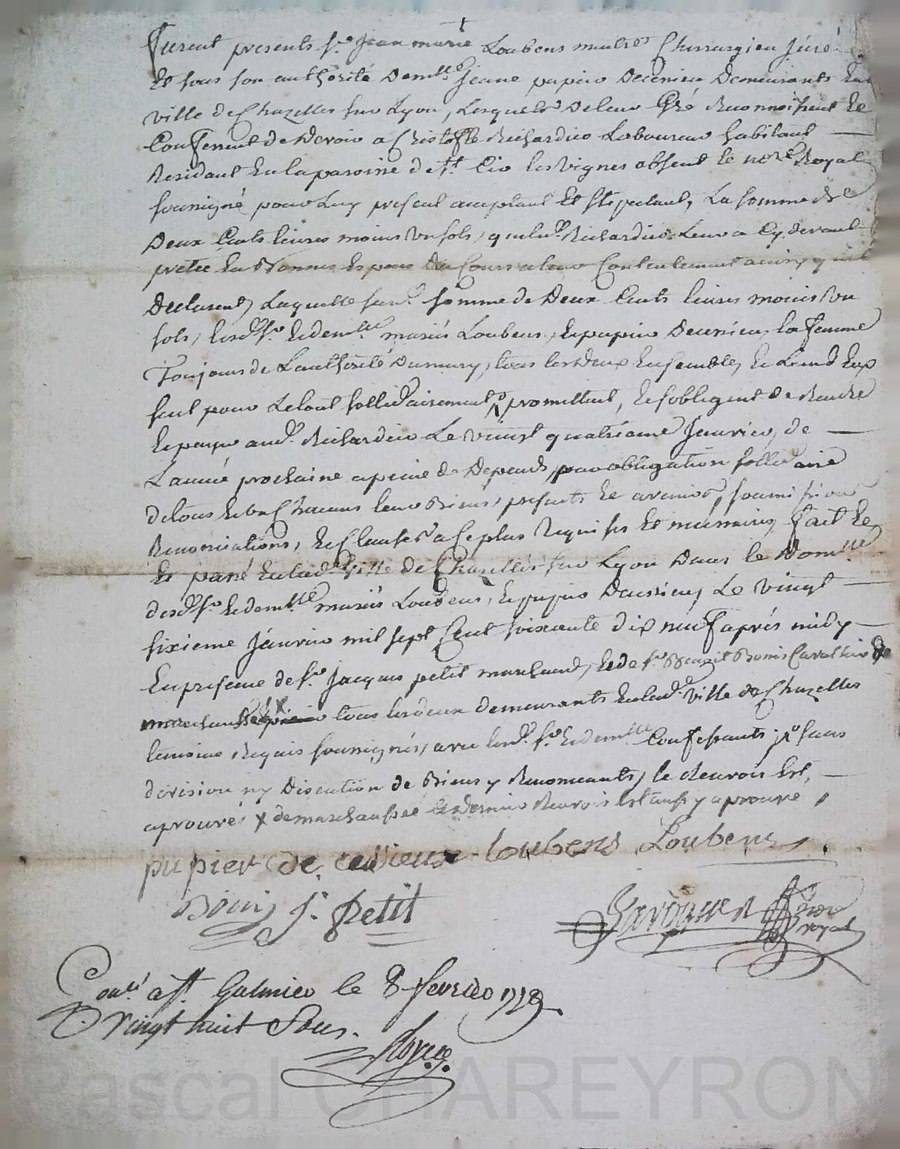 furent presents sr. Jean marie Loubens maitre Chirurgien juré
Et sous son authorité demlle jeane pupier Decenieu Demeurants En
ville de Chazelles sur Lyon, Lesquels De leur Gré Reconnoissent Et
Confessent de Devoir a Cristofle Richardier Laboureur habitant
Residant En la paroisse de st. les vignes absent le nore. Royal
soussigné pour Luy present acceptant Et stipulant, La somme de
Deux Cents livres moins un sols, que led. Richardier Leur a Cy devant
pretée En bonnes Especes Du Cours a leur Contentement ainsy quils
Declarent, Laquelle susd. somme de Deux Cents livres moins un
sols, lesd. sr. Et demlle mariés Loubens, Et pupier Decenieu, la femme
Toujours de Lauthorité Du mary, tous les Deux Ensemble, Et Lun d'Eux
seul pour Le tout sollidairement promettent, Et sobligent de Rendre
Et payer aud. Richardier Le vingt quatrieme Janvier, de
L'année prochaine a peine de Depends, par obligation sollidaire
de tous Et Chacuns leurs Biens, presents Et avenirs, soumissions
Renonciations, Et Clauses a Ce plus Requises Et necessaires, fait Et
Et passé En lad. ville de Chazelles sur Lyon Dans le Domlle
desd. sr. Et demlle mariés Loubens, Et pupier Le vingt
sixieme Janvier mil sept Cent soixante dix neuf après midy
En presence de sr. Jacques petit marchand, Et de sr. Benoit Bonis Cavallier de
marechaussée tous les deux demeurants En lad. ville de Chazelles
temoins Requis soussignés, avec lesd. sr. Et demlle Confessants, sans
division ny Discution de Biens y Renoncants, le Renvois Est
aprouvé x de marechaussée Le dernier Renvois Est aussy aprouvé
pupier de Loubens Loubens
Bonis J. Petit
royal
Conlé. a st. Galmier le 8 fevrier 177
R. vingt huit Sous.
Pascal CHAREYRON